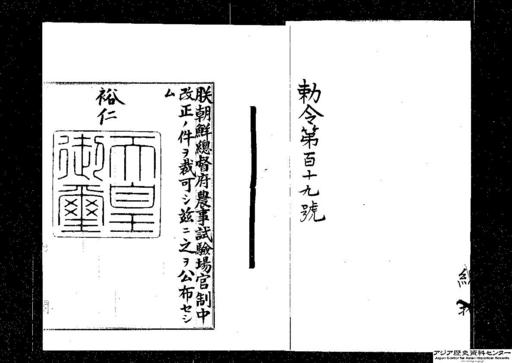 勅令第百十九號
朕朝鮮總督府農事試驗場官制中
改正ノ件ヲ裁可シ茲ニ之ヲ公布セシ
ム
裕仁
天皇
御璽
アジア歴史資料センター
Japan Center for Asian Historical Records